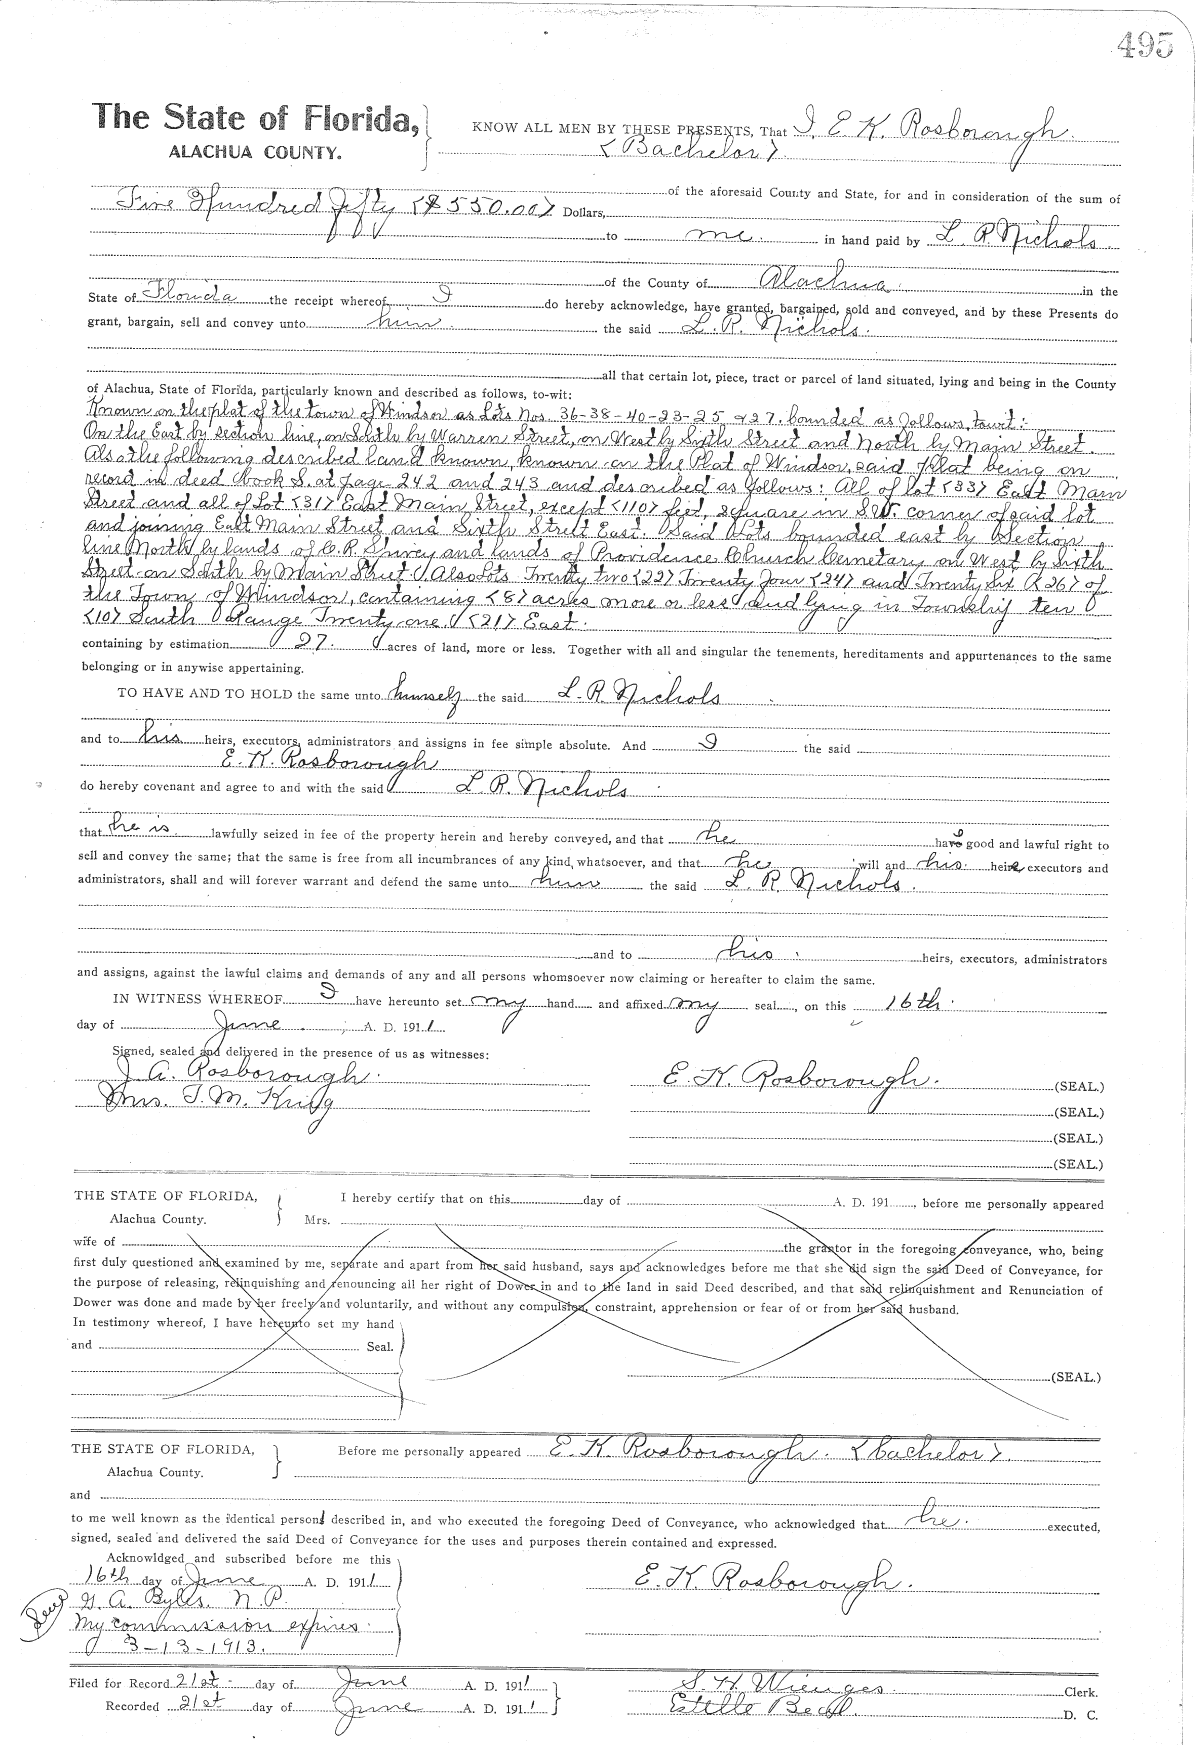 495
The State of Florida,
ALACHUA COUNTY.
KNOW ALL MEN BY THESE PRESENTS, That I, E. K. Rosborough.
<Bachelor>.
of the aforesaid County and State, for and in consideration of the sum of
Five Hundred Fifty <$550.00> Dollars,
to me. in hand paid by L. R. Nichols.
of the County of Alachua. in the
State of Florida the receipt whereof I do hereby acknowledge, have granted, bargained, sold and conveyed, and by these Presents do
grant, bargain, sell and convey unto him. the said L. R. Nichols.
all that certain lot, piece, tract or parcel of land situated, lying and being in the County
of Alachua, State of Florida, particularly known and described as follows, to-wit:
Known on the plat of the town of Windsor as Lots Nos. 36-38-40-23-25 & 27. bounded as follows, towit:
On the East by section line, on South by Warren Street, on West by Sixth Street and North by Main Street.
Also the following described land known, known on the Plat of Windsor, said plat being on
record in deed book S. at page 242 and 243 and described as follows: All of lot <33> East Main
Street and all of Lot <31> East Main Street, except <110> feet, square in S.W. corner of said lot
and joining East Main Street and Sixth Street East. Said Lots bounded east by Section
line North by lands of and lands of Providence Church Cemetary on West by Sixth
Street on South by Main Street. Also Lots Twenty two <22> Twenty Four <24> and Twenty Six <26> of
the Town of Windsor, containing <8> acres more or less and lying in Township ten
<10> South Range Twenty-one <21> East.
containing by estimation 27. acres of land, more or less. Together with all and singular the tenements, hereditaments and appurtenances to the same
belonging or in anywise appertaining.
TO HAVE AND TO HOLD the same unto himself the said L. R. Nichols
and to his heirs, executors, administrators and assigns in fee simple absolute. And I the said
E. K. Rosborough
do hereby covenant and agree to and with the said L. R. Nichols
that he is lawfully seized in fee of the property herein and hereby conveyed, and that he has good and lawful right to
sell and convey the same; that the same is free from all incumbrances of any kind whatsoever, and that he will and his heirs executors and
administrators, shall and will forever warrant and defend the same unto him the said L. R. Nichols.
and to his heirs, executors, administrators
and assigns, against the lawful claims and demands of any and all persons whomsoever now claiming or hereafter to claim the same.
IN WITNESS WHEREOF I have hereunto set my hand and affixed my seal, on this 16th.
day of June. A. D. 1911
Signed, sealed and delivered in the presence of us as witnesses:
J. A. Rosborough. E. K. Rosborough. (SEAL.)
Mrs. T. M. (SEAL.)
(SEAL.)
(SEAL.)
THE STATE OF FLORIDA, I hereby certify that on this day of A. D. 191 , before me personally appeared
Alachua County. Mrs.
wife of the grantor in the foregoing conveyance, who, being
first duly questioned and examined by me, separate and apart from her said husband, says and acknowledges before me that she did sign the said Deed of Conveyance, for
the purpose of releasing, relinquishing and renouncing all her right of Dower in and to the land in said Deed described, and that said relinquishment and Renunciation of
Dower was done and made by her freely and voluntarily, and without any compulsion, constraint, apprehension or fear of or from her said husband.
In testimony whereof, I have hereunto set my hand
and Seal.
(SEAL.)
THE STATE OF FLORIDA, Before me personally appeared E. K. Rosborough. <bachelor>.
Alachua County.
and
to me well known as the identical person described in, and who executed the foregoing Deed of Conveyance, who acknowledged that he. executed,
signed, sealed and delivered the said Deed of Conveyance for the uses and purposes therein contained and expressed.
Acknowldged and subscribed before me this
16th day of June A. D. 1911 E. K. Rosborough.
Seal G. A. Byles. N. P.
My commission expires.
3-13-1913.
Filed for Record 21st. day of June A. D. 1911 S. H. Wienges Clerk.
Recorded 21st day of June A. D. 1911 Estelle D. C.